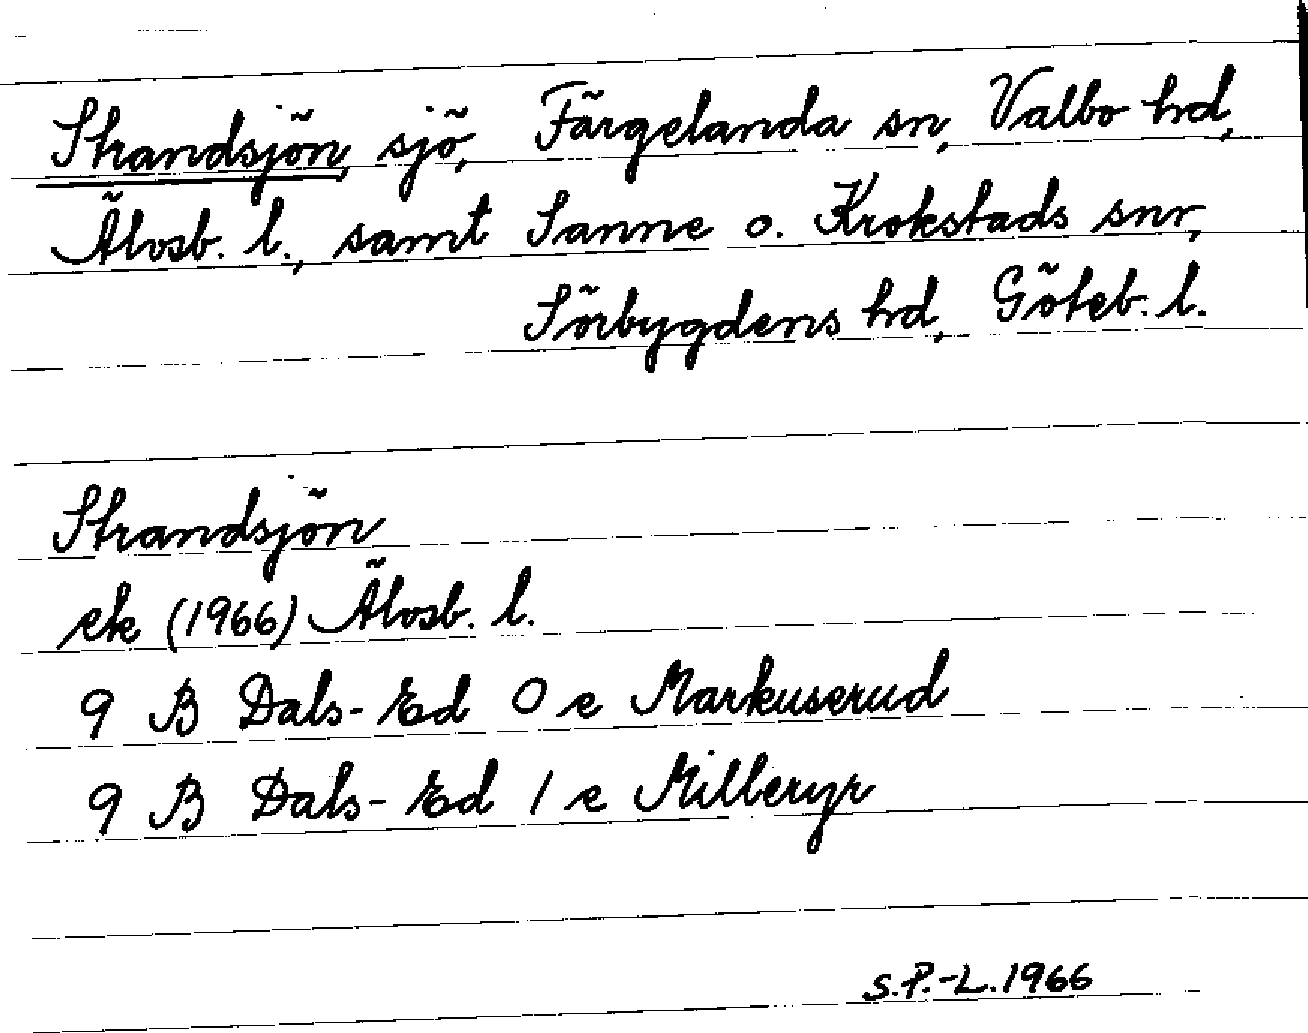 Strandsjön, sjö, Färgelanda sn, Valbo hd,
Älvsb. l., samt Sanne o. Krokstads snr,
Sörbygdens hd, Göteb. l.
Strandsjön
ek (1966) Älvsb. l.
9 B Dals-Ed 0 e Markuserud
9 B Dals-Ed 1 e Milleryr
S.P.-L. 1966